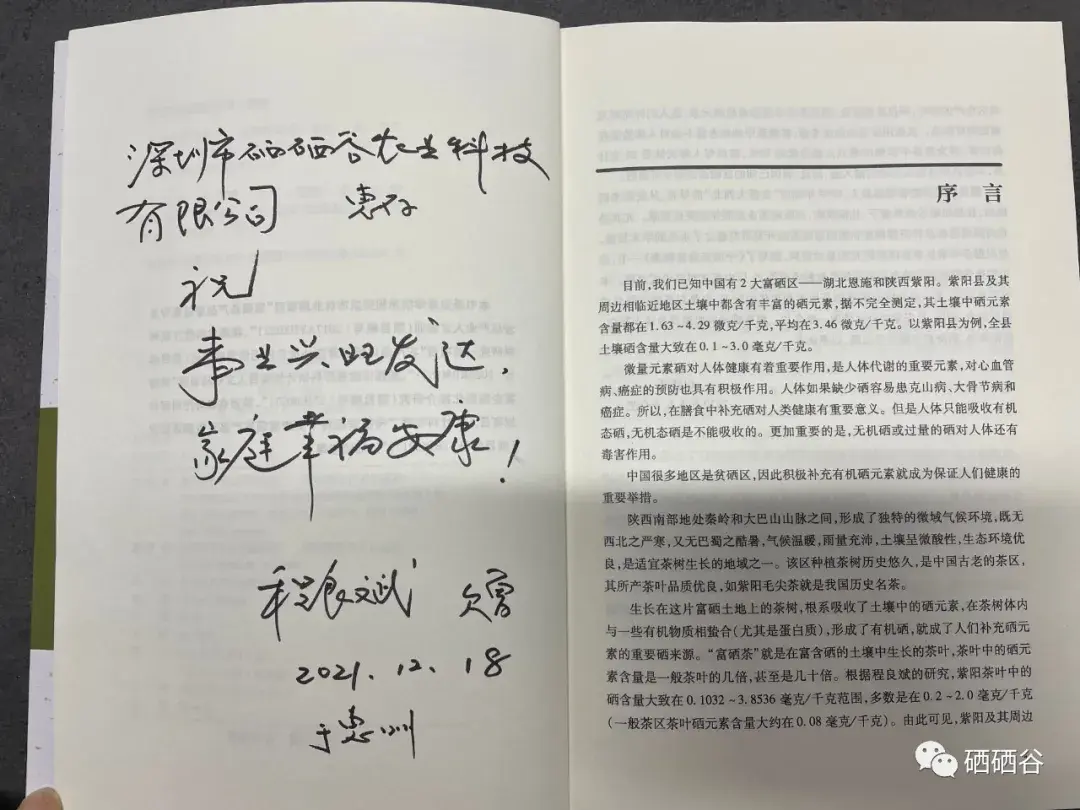 深圳市硒硒谷农业科技
有限公司 惠存
祝
事业兴旺发达,
家庭幸福安康!
程良斌 欠曾
2021.12.18
于惠州
序言
目前,我们已知中国有2大富硒区——湖北恩施和陕西紫阳。紫阳县及其
周边相临近地区土壤中都含有丰富的硒元素,据不完全测定,其土壤中硒元素
含量都在1.63~4.29微克/千克,平均在3.46微克/千克。以紫阳县为例,全县
土壤硒含量大致在0.1~3.0毫克/千克。
微量元素硒对人体健康有着重要作用,是人体代谢的重要元素,对心血管
病、癌症的预防也具有积极作用。人体如果缺少硒容易患克山病、大骨节病和
癌症。所以,在膳食中补充硒对人类健康有重要意义。但是人体只能吸收有机
态硒,无机态硒是不能吸收的。更加重要的是,无机硒或过量的硒对人体还有
毒害作用。
中国很多地区是贫硒区,因此积极补充有机硒元素就成为保证人们健康的
重要举措。
陕西南部地处秦岭和大巴山山脉之间,形成了独特的微域气候环境,既无
西北之严寒,又无巴蜀之酷暑,气候温暖,雨量充沛,土壤呈微酸性,生态环境优
良,是适宜茶树生长的地域之一。该区种植茶树历史悠久,是中国古老的茶区,
其所产茶叶品质优良,如紫阳毛尖茶就是我国历史名茶。
生长在这片富硒土地上的茶树,根系吸收了土壤中的硒元素,在茶树体内
与一些有机物质相螯合(尤其是蛋白质),形成了有机硒,就成了人们补充硒元
素的重要硒来源。“富硒茶”就是在富含硒的土壤中生长的茶叶,茶叶中的硒元
素含量是一般茶叶的几倍,甚至是几十倍。根据程良斌的研究,紫阳茶叶中的
硒含量大致在0.1032~3.8536毫克/千克范围,多数是在0.2~2.0毫克/千克
(一般茶区茶叶硒元素含量大约在0.08毫克/千克)。由此可见,紫阳及其周边
硒硒谷